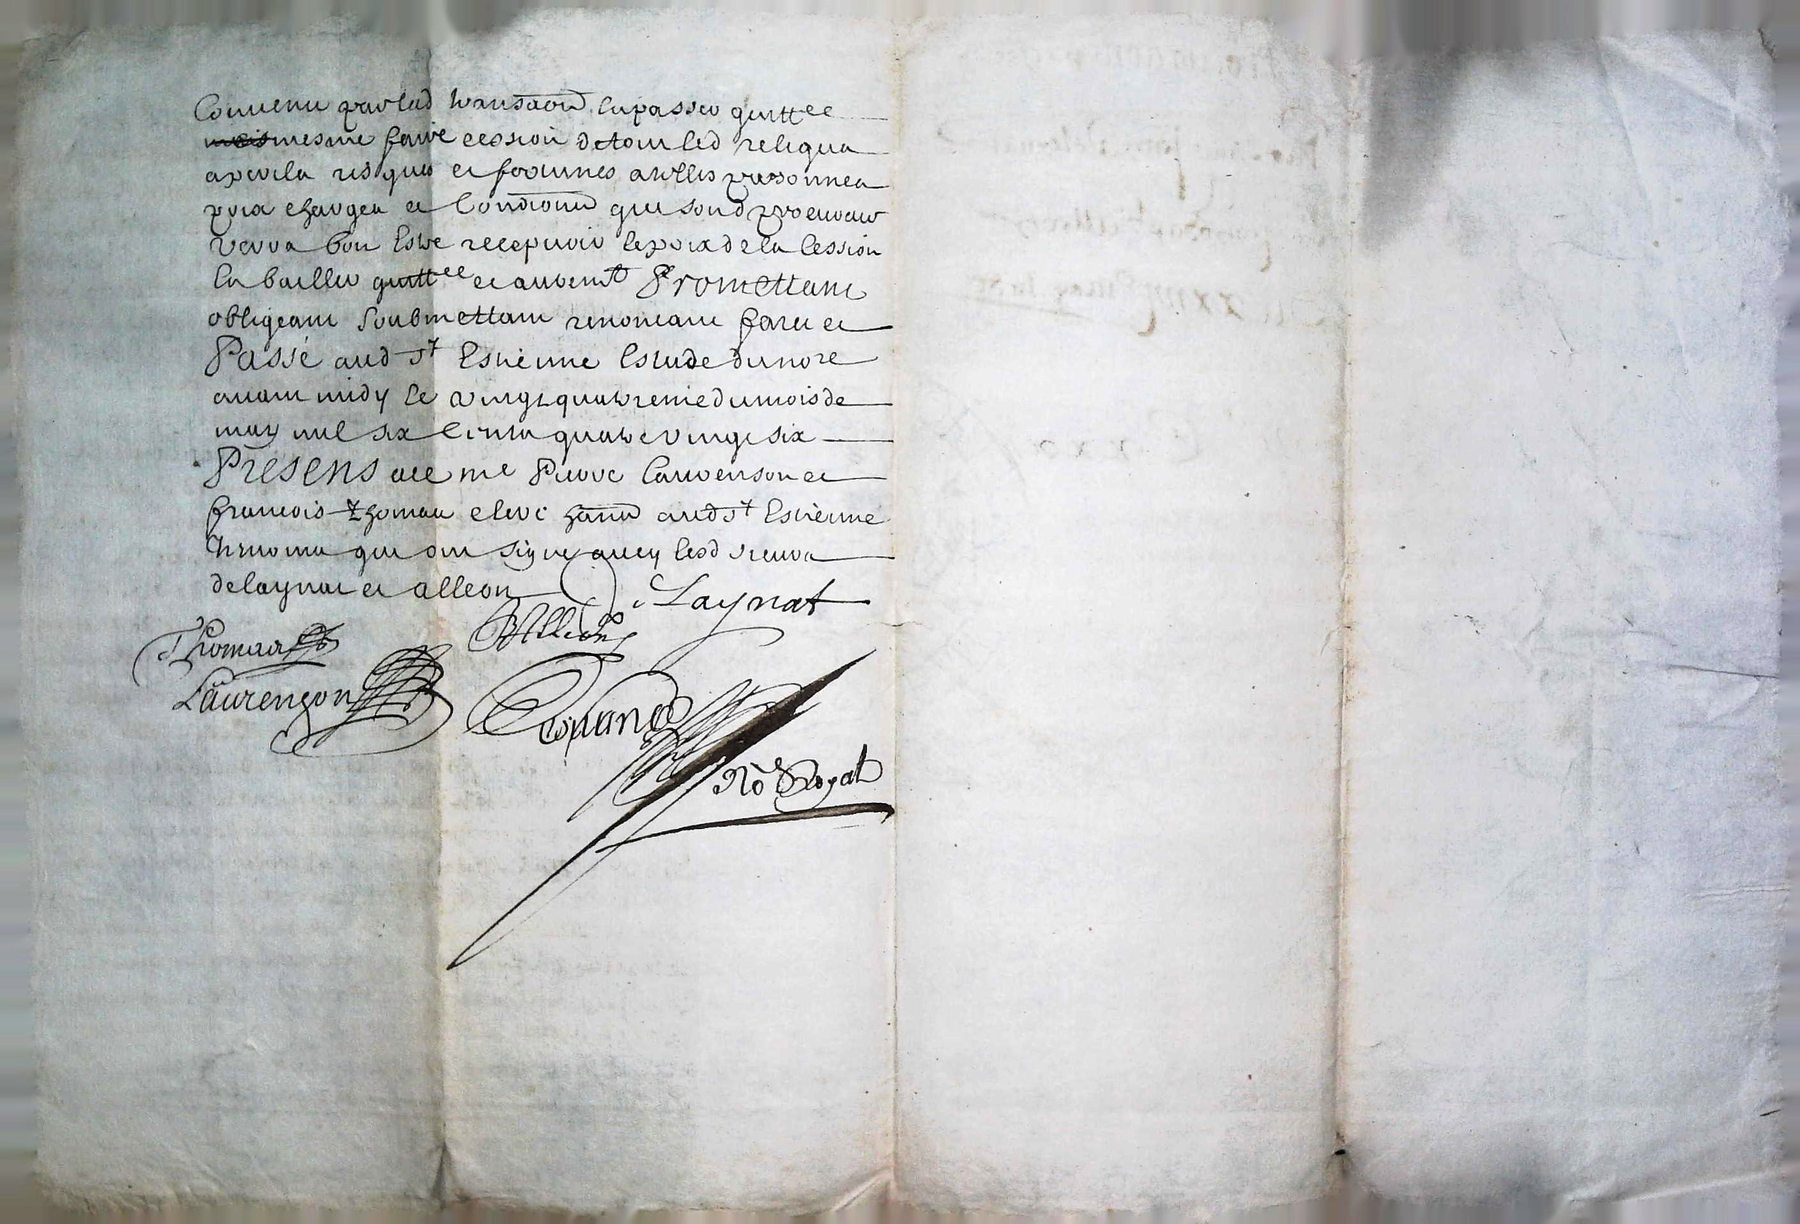 Convenu par lad transaon en passer quittce
mesme faire cession de tout led reliqua
a perils risques et fortunes a telles personnes
prix charges et Conditions que sond procureur
verra bon Estre recepvoir le prix de la Cession
En bailler quittce et autremt Promettant
obligeant Soubmettant renonceant faict et
Passé aud st Estienne Estude du nore
avant midy le vingt quatreme du mois de
may mil six Cents quatre vingt six
Presens a ce me Pierre Laurenson et
francois Thomas clerc hants aud st Estienne
tesmoins qui ont signe avec lesd sieurs
de laynat et alleon
Laynat
Alleon
Thomas
Laurençon
No Royal